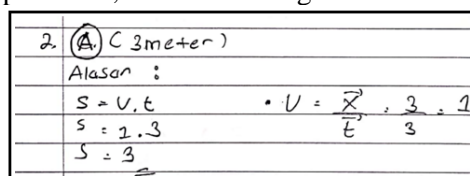 2. A. (3 meter)
Alasan :
S = V.t
S = 1.3
S = 3
• V = x⃗ / t⃗ = 3 / 3 = 1